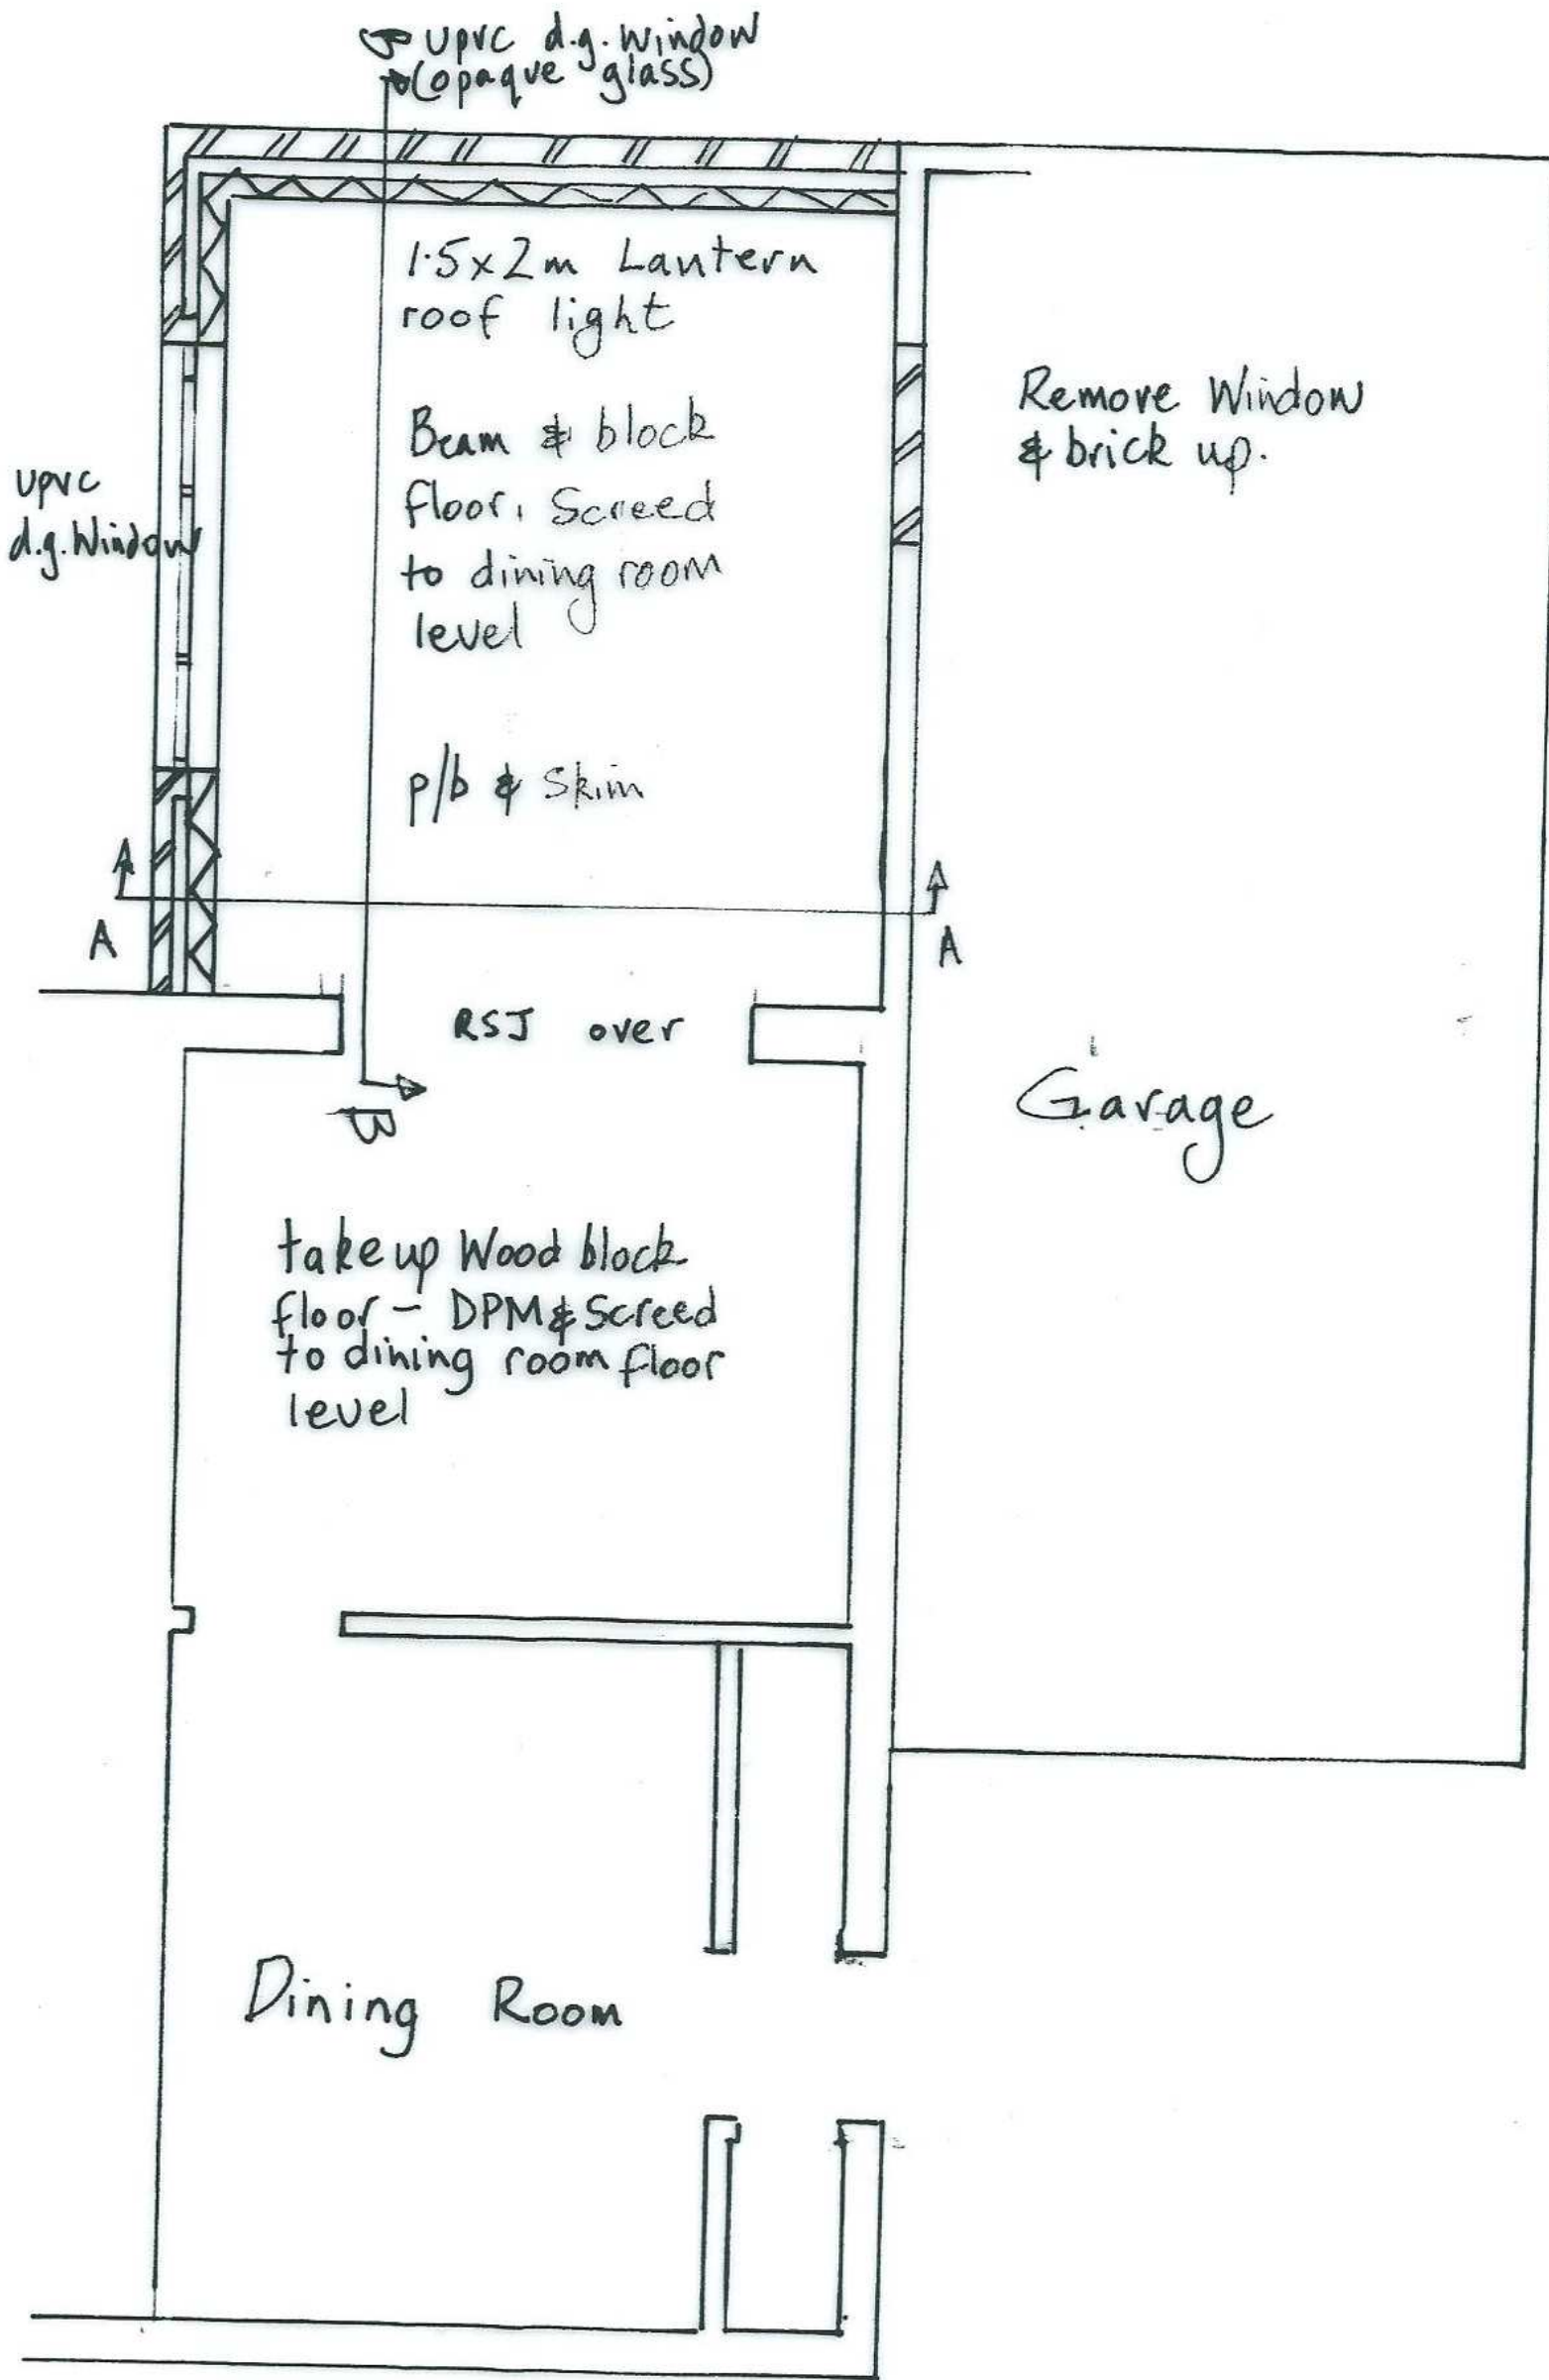 upvc d.g. window
(opaque glass)
1.5x2m Lantern
roof light
Beam & block
floor, Screed
to dining room
level
p/b & Skim
upvc
d.g. Window
Remove Window
& brick up.
A
A
RSJ over
B
Garage
take up Wood block
floor - DPM & Screed
to dining room floor
level
Dining Room